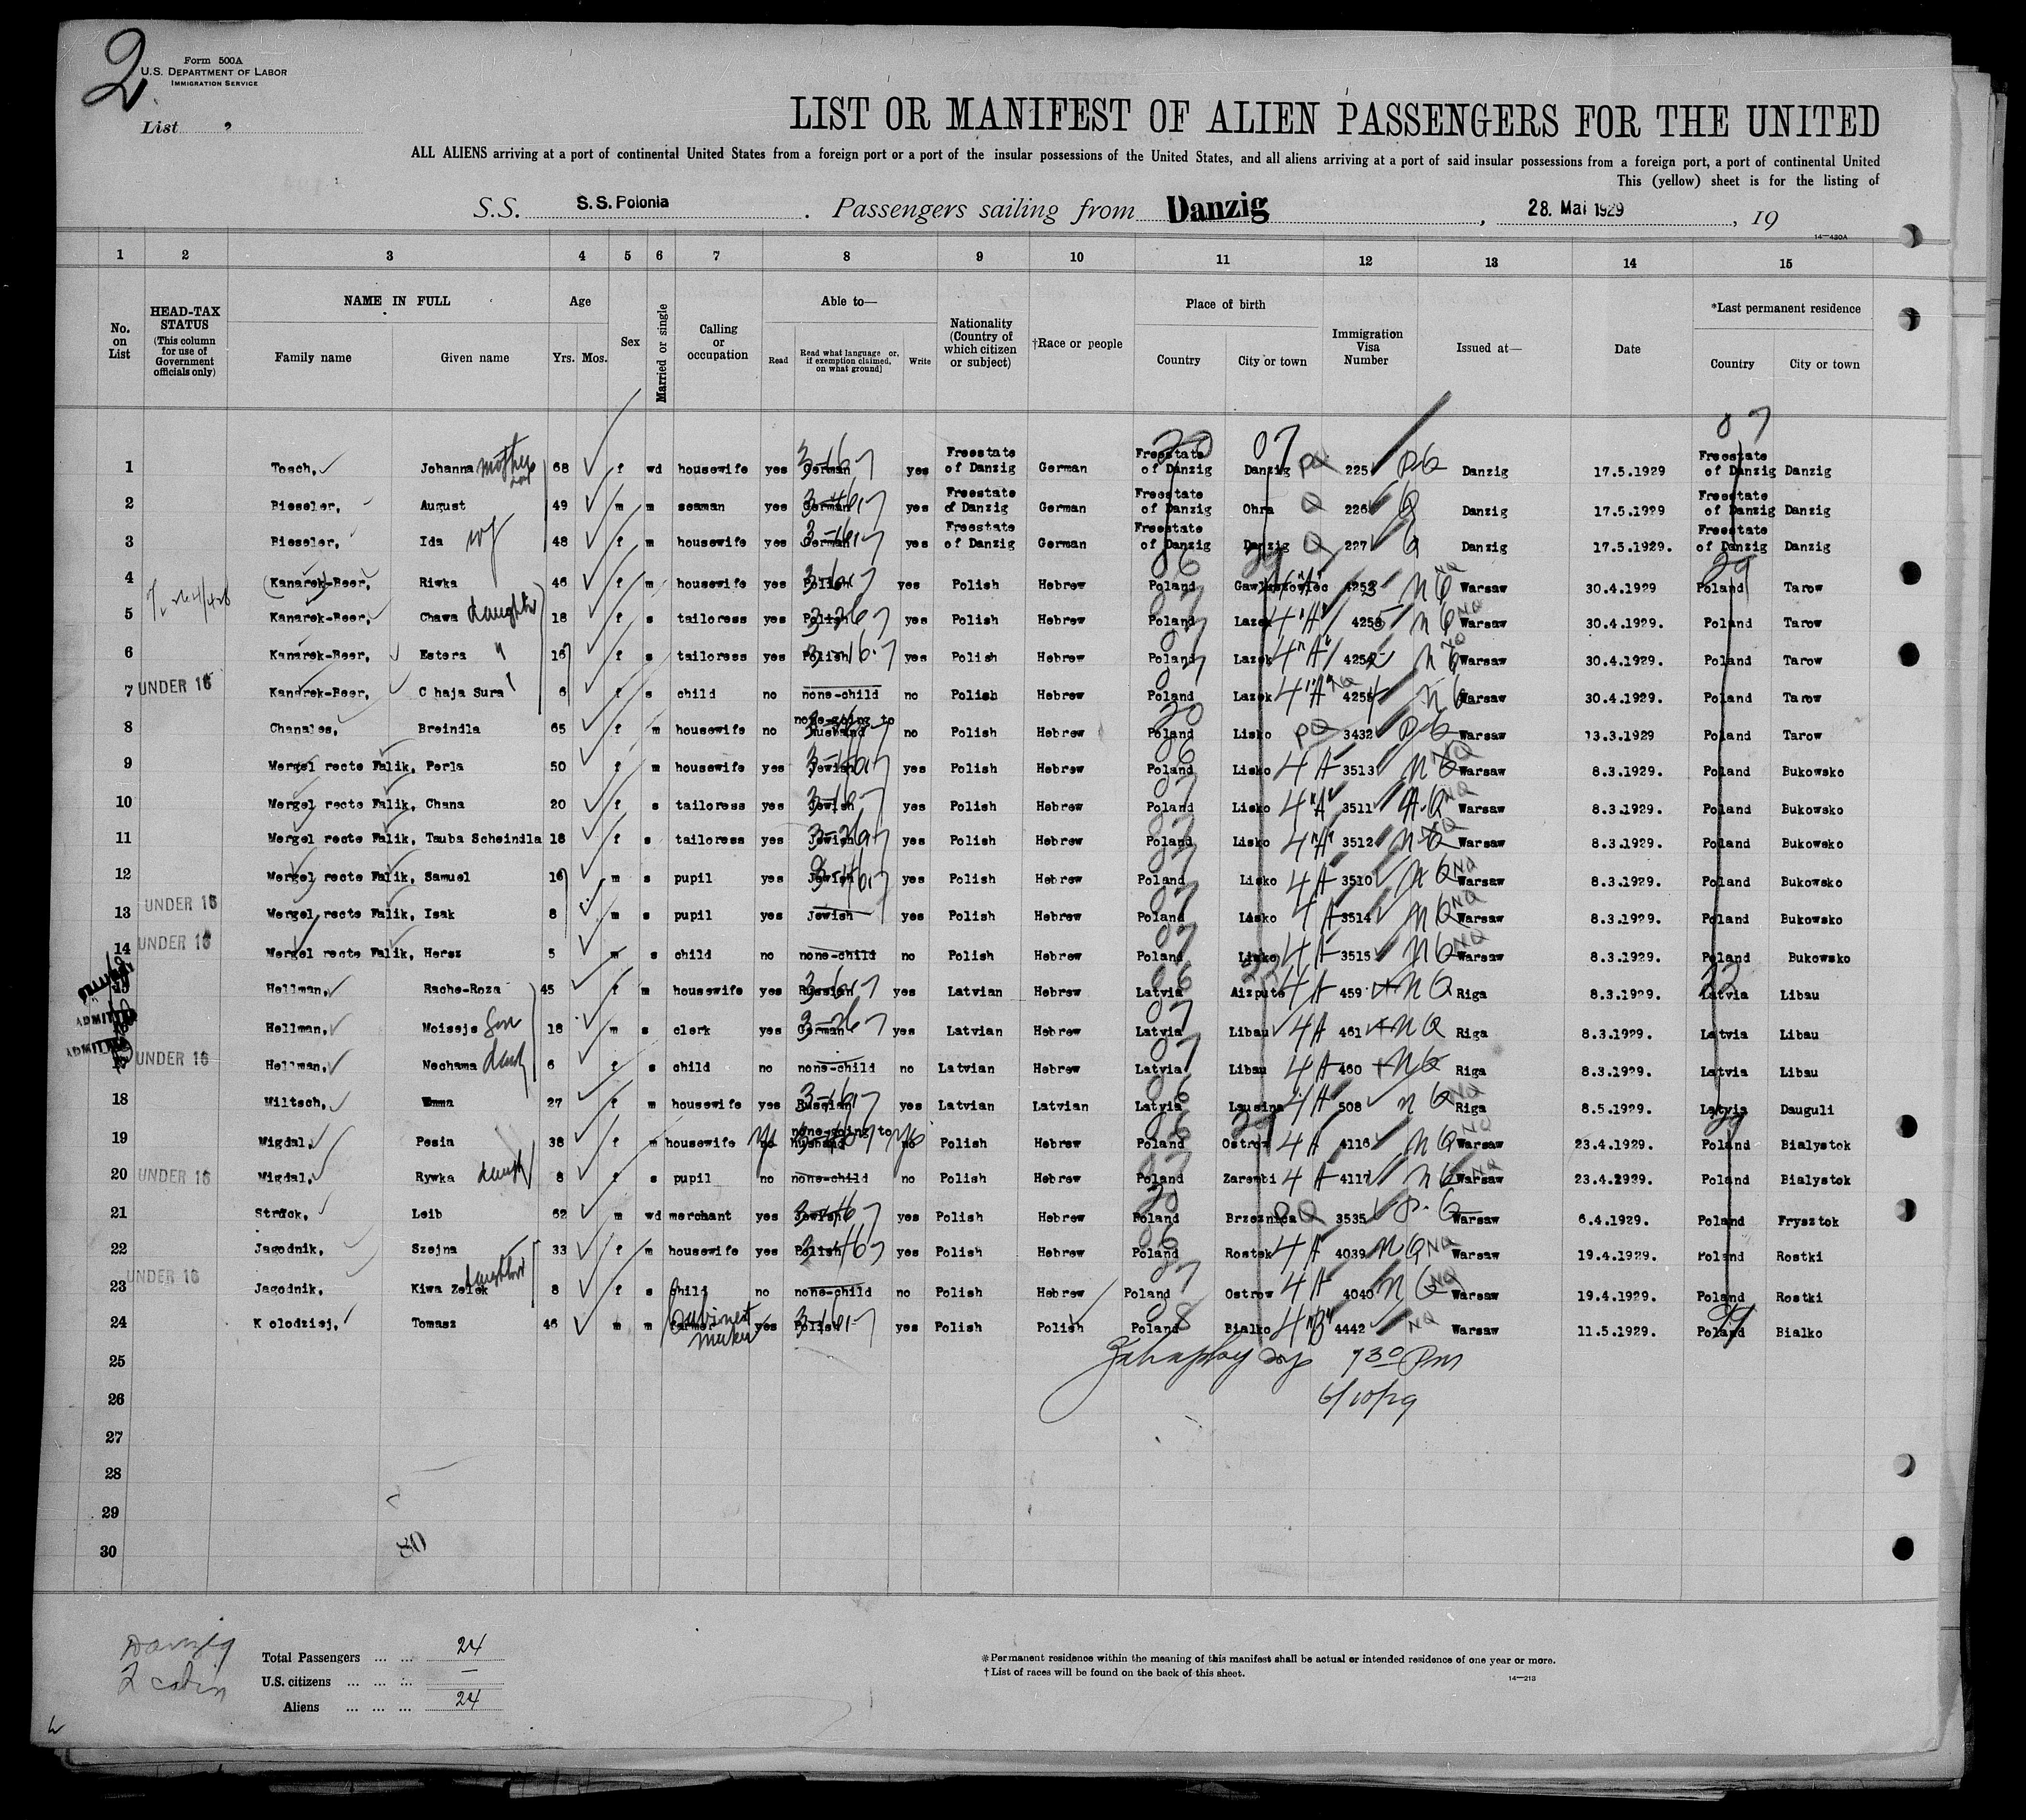 2
Form 500A
U.S. DEPARTMENT OF LABOR
IMMIGRATION SERVICE
List
LIST OR MANIFEST OF ALIEN PASSENGERS FOR THE UNITED
ALL ALIENS arriving at a port of continental United States from a foreign port or a port of the insular possessions of the United States, and all aliens arriving at a port of said insular possessions from a foreign port, a port of continental United
This (yellow) sheet is for the listing of
S.S. S.S. Polonia . Passengers sailing from Danzig , 28. Mai 1929 , 19
14-430A
1 2 3 4 5 6 7 8 9 10 11 12 13 14 15
No. on List
HEAD-TAX STATUS (This column for use of Government officials only)
NAME IN FULL
Family name Given name
Age
Yrs. Mos.
Sex
Married or single
Calling or occupation
Able to—
Read Read what language or, if exemption claimed, on what ground] Write
Nationality (Country of which citizen or subject)
†Race or people
Place of birth
Country City or town
Immigration Visa Number
Issued at—
Date
*Last permanent residence
Country City or town
07 07
1 Tosch, Johanna mother 68 f wd housewife yes German yes Freestate of Danzig German Freestate of Danzig Danzig PQ 225 Danzig 17.5.1929 Freestate of Danzig Danzig
2 Bieseler, August 49 m m seaman yes German yes Freestate of Danzig German Freestate of Danzig Ohra Q 226 Q Danzig 17.5.1929 Freestate of Danzig Danzig
3 Bieseler, Ida wf 48 f m housewife yes German yes Freestate of Danzig German Freestate of Danzig Danzig Q 227 Q Danzig 17.5.1929. Freestate of Danzig Danzig
4 (Kanarek-Beer, Riwka 46 f m housewife yes Polish yes Polish Hebrew Poland NQ Warsaw 30.4.1929 Poland Tarow
5 Kanarek-Beer, Chawa daughter 18 f s tailoress yes Polish yes Polish Hebrew Poland Lazek 4"A" NQ Warsaw 30.4.1929. Poland Tarow
6 Kanarek-Beer, Estera " 16 f s tailoress yes Polish yes Polish Hebrew Poland Lazek 4"A" NQ Warsaw 30.4.1929. Poland Tarow
7 UNDER 16 Kanarek-Beer, Chaja Sura 6 f s child no none-child no Polish Hebrew Poland Lazek 4"A" NQ Warsaw 30.4.1929. Poland Tarow
8 Chanales, Breindla 65 f m housewife no none-going to husband no Polish Hebrew Poland Lisko PQ 3432 Warsaw 13.3.1929 Poland Tarow
9 Mergel recte Falik, Perla 50 f m housewife yes Jewish yes Polish Hebrew Poland Lisko 4A 3513 NQ Warsaw 8.3.1929. Poland Bukowsko
10 Mergel recte Falik, Chana 20 f s tailoress yes Jewish yes Polish Hebrew Poland Lisko 4"A" 3511 NQ Warsaw 8.3.1929. Poland Bukowsko
11 Mergel recte Falik, Tauba Scheindla 18 f s tailoress yes Jewish yes Polish Hebrew Poland Lisko 4"A" 3512 NQ Warsaw 8.3.1929. Poland Bukowsko
12 Mergel recte Falik, Samuel 16 m s pupil yes Jewish yes Polish Hebrew Poland Lisko 4A 3510 NQ Warsaw 8.3.1929. Poland Bukowsko
13 UNDER 16 Mergel recte Falik, Isak 8 m s pupil yes Jewish yes Polish Hebrew Poland Lisko 4A 3514 NQ Warsaw 8.3.1929. Poland Bukowsko
14 UNDER 16 Mergel recte Falik, Hersz 5 m s child no none-child no Polish Hebrew Poland Lisko 4A 3515 NQ Warsaw 8.3.1929. Poland Bukowsko
15 Hellman, Rache-Roza 45 f m housewife yes Russian yes Latvian Hebrew Latvia Aizpute 4A 459 NQ Riga 8.3.1929. Latvia Libau
ADMITTED Hellman, Moisejs Son 18 m s clerk yes German yes Latvian Hebrew Latvia Libau 4A 461 NQ Riga 8.3.1929. Latvia Libau
ADMITTED UNDER 16 Hellman, Nechama daug 6 f s child no none-child no Latvian Hebrew Latvia Libau 4A 460 NQ Riga 8.3.1929. Latvia Libau
18 Wiltsch, Emma 27 f m housewife yes Russian yes Latvian Latvian Latvia 4A 508 NQ Riga 8.5.1929. Latvia Dauguli
19 Migdal, Pesia 38 f m housewife no none-going to husband no Polish Hebrew Poland Ostrow 4A 4116 NQ Warsaw 23.4.1929. Poland Bialystok
20 UNDER 16 Migdal, Rywka daug 8 f s pupil no none-child no Polish Hebrew Poland Zarembi 4A 4117 NQ Warsaw 23.4.1929. Poland Bialystok
21 Struck, Leib 62 m wd merchant yes Jewish yes Polish Hebrew Poland Brzeznica PQ 3535 Warsaw 6.4.1929. Poland Frysztok
22 Jagodnik, Szejna 33 f m housewife yes Polish yes Polish Hebrew Poland Rostek 4A 4039 NQ Warsaw 19.4.1929. Poland Rostki
23 UNDER 16 Jagodnik, Kiwa Zelek daughter 8 f s child no none-child no Polish Hebrew Poland Ostrow 4A 4040 NQ Warsaw 19.4.1929. Poland Rostki
24 Kolodziej, Tomasz 46 m m farmer Cabinet maker yes Polish yes Polish Polish Poland Bialko 4"B" 4442 NQ Warsaw 11.5.1929. Poland Bialko
25 730 Pm
26 6/10/29
27
28
29
30
80
Danzig
2 cabin
Total Passengers ... ... 24
U.S. citizens ... ... ... —
Aliens ... ... ... 24
*Permanent residence within the meaning of this manifest shall be actual or intended residence of one year or more.
†List of races will be found on the back of this sheet.
14-213